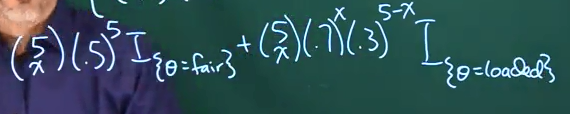 (5 x)(.5)^5 I_{θ=fair} + (5 x)(.7)^x(.3)^{5-x} I_{θ=loaded}